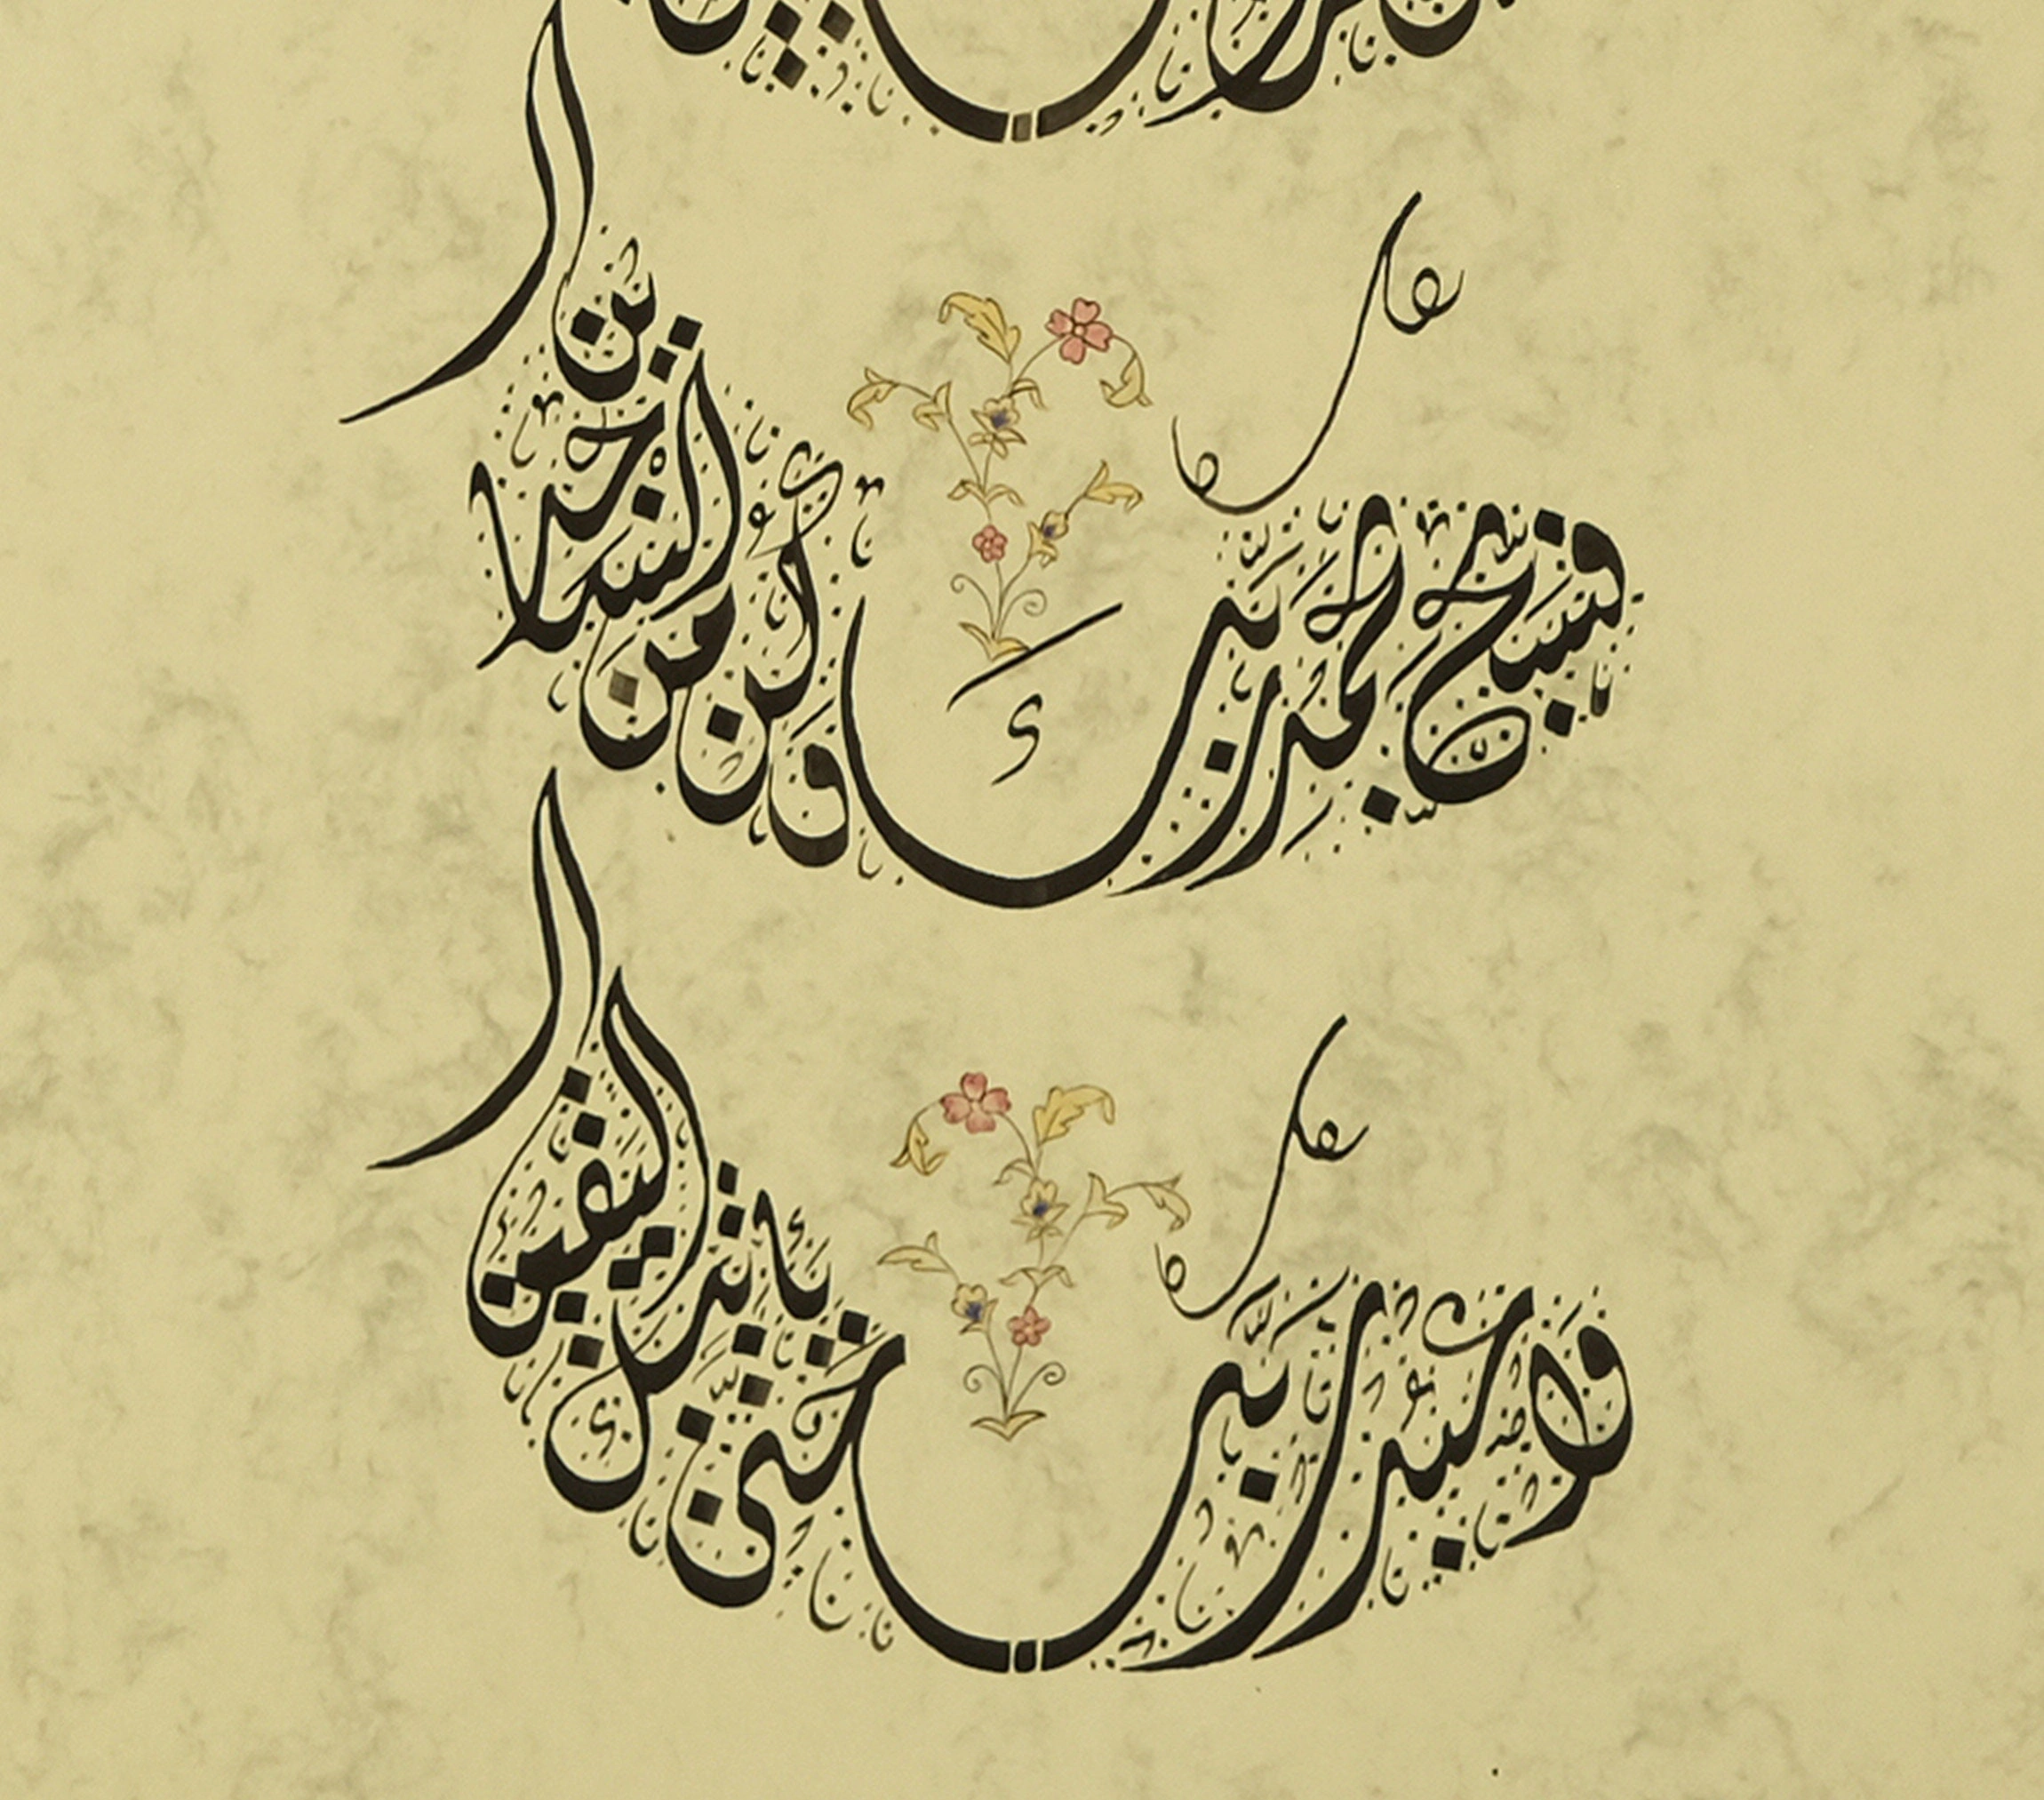 فسبح بحمد ربك وكن من الساجدين
واعبد ربك حتى يأتيك اليقين